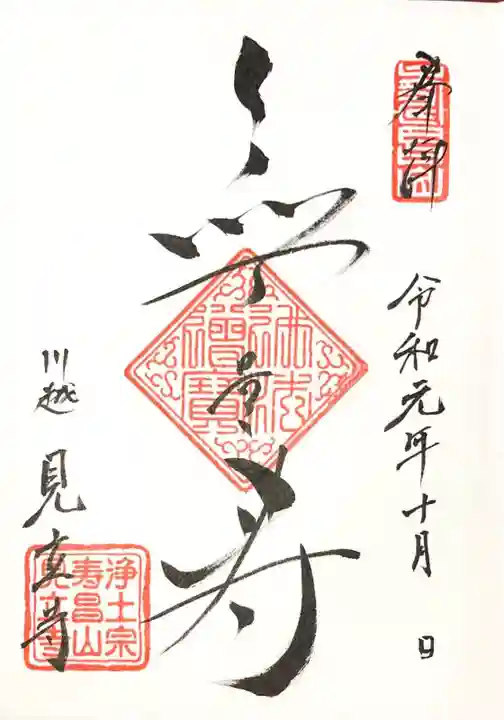 奉拝
令和元年十月 日
無量寿
川越 見立寺
佛法僧寳
浄土宗
寿昌山
見立寺